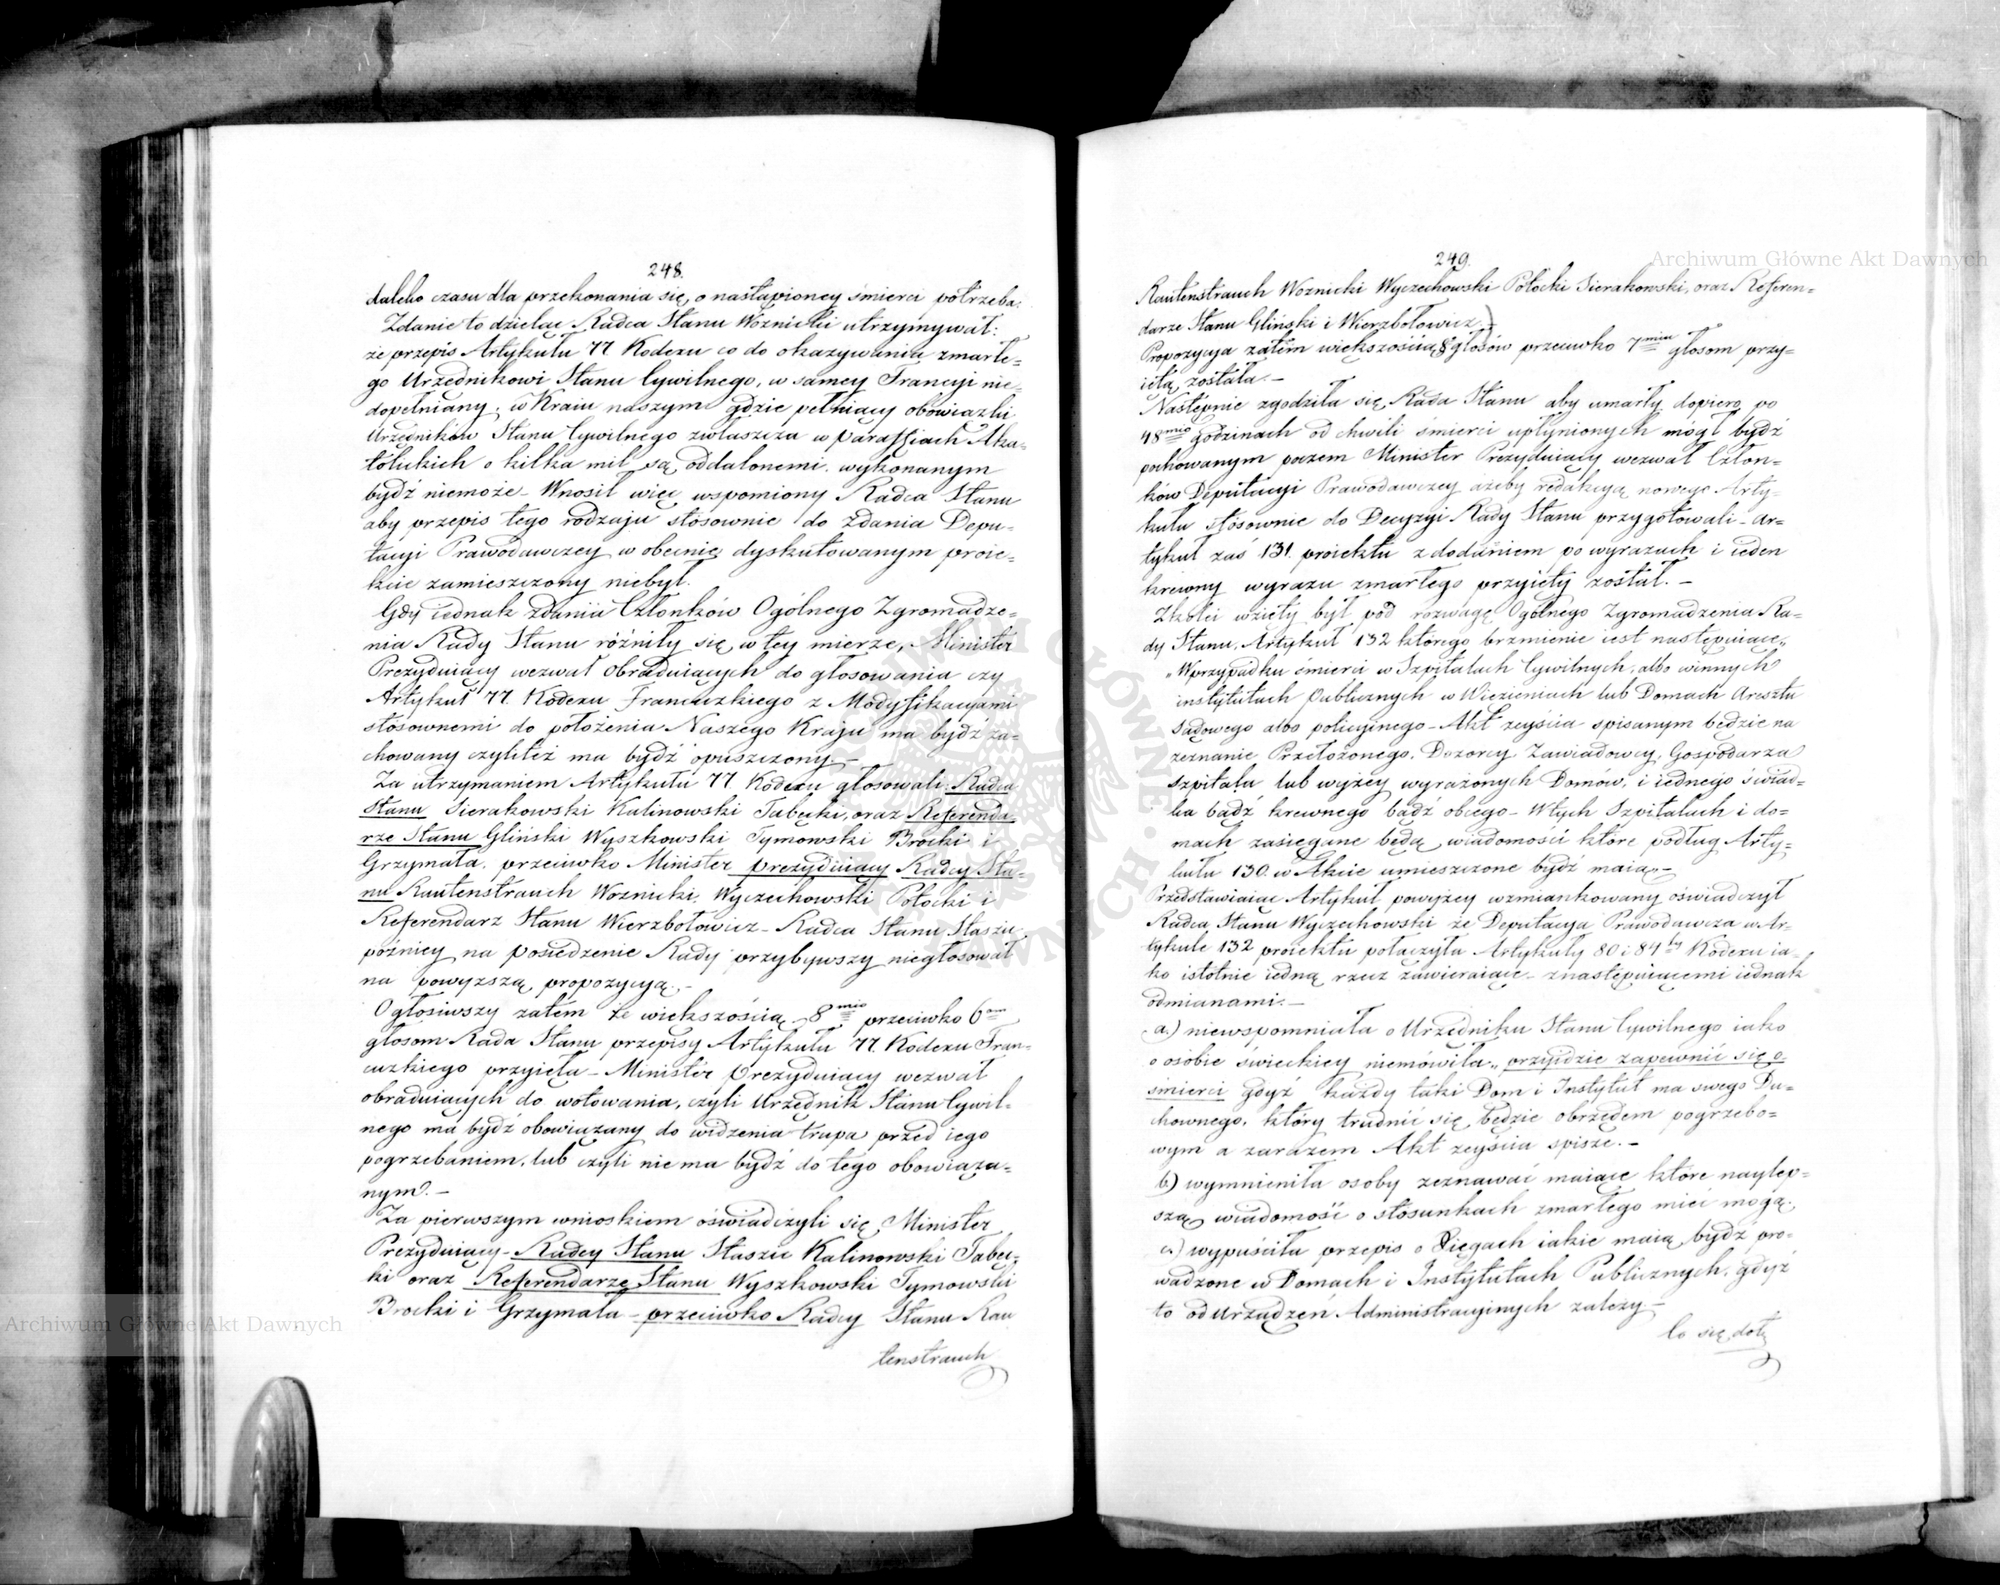 248.
daleko czasu dla przekonania się, o nastąpioney śmierci potrzeba.
Zdanie to dzieląc Radca Stanu Woźnicki utrzymywał:
że przepis Artykułu 77 Kodexu co do okazywania zmarłe-
go Urzędnikowi Stanu Cywilnego, w samey Francyi nie-
dopełniany, w Kraiu naszym gdzie pełniący obowiązki
Urzędników Stanu Cywilnego zwłaszcza w paraffiach Aka-
tolickich o kilka mil są oddalonemi, wykonanym
bydź niemoże_ Wnosił więc wspomiony Radca Stanu
aby przepis tego rodzaju stósownie do Zdania Depu-
tacyi Prawodawczey w obecnie dyskutowanym proie-
kcie zamieszczony niebył.
Gdy iednak zdania Członków Ogólnego Zgromadze-
nia Rady Stanu różniły się w tey mierze, Minister
Prezyduiący wezwał Obraduiących do głosowania czy
Artykuł 77. Kodexu Francuzkiego z Modyfikacyami
stósownemi do położenia Naszego Kraju ma bydź za-
chowany czyliteż ma bydź opuszczony_
Za utrzymaniem Artykułu 77. Kodexu głosowali: Radca
Stanu Sierakowski Kalinowski Tabęcki, oraz Referenda-
rze Stanu Gliński Wyszkowski Tymowski Brocki i
Grzymała. przeciwko Minister prezyduiący Radcy Sta-
nu Rautenstrauch Woźnicki, Wyczechowski Potocki i
Referendarz Stanu Wierzbołowicz_ Radca Stanu Staszic
późniey na posiedzenie Rady przybywszy niegłosował
na powyższą propozycyą._
Ogłosiwszy zatem że większością 8mio przeciwko 6om
głosom Rada Stanu przepisy Artykułu 77. Kodexu Fran-
cuzkiego przyięła_ Minister Prezyduiący wezwał
obraduiących do wotowania, czyli Urzędnik Stanu Cywil-
nego ma bydź obowiązany do widzenia trupa przed iego
pogrzebaniem, lub czyli nie ma bydź do tego obowiąza-
nym._
Za pierwszym wnioskiem oświadczyli się Minister
Prezyduiący_ Radcy Stanu Staszic Kalinowski Tabęc-
ki oraz Referendarze Stanu Wyszkowski Tymowski
Brocki i Grzymała_ przeciwko Radcy Stanu Rau
tenstrauch
249.
Rautenstrauch Woznicki Wyczechowski Potocki Sierakowski, oraz Referen-
darze Stanu Gliński i Wierzbołowicz_
Propozycya zatem większością 8 głosów przeciwko 7miu głosom przy-
iętą została._
Następnie zgodziła się Rada Stanu aby umarły dopiero po
48mio godzinach od chwili śmierci upłynionych mógł bydź
pochowanym poczem Minister Prezyduiący wezwał Człon-
ków Deputacyi Prawodawczey ażeby redakcyą nowego Arty-
kułu stósownie do Decyzyi Rady Stanu przygotowali_ Ar-
tykuł zaś 131. proiektu z dodaniem po wyrazach i ieden
krewny wyrazu zmarłego przyięty został._
Zkolei wzięty był pod rozwagę Ogólnego Zgromadzenia Ra-
dy Stanu, Artykuł 132 którego brzmienie iest następuiące,,
„Wprzypadku śmierci w Szpitalach Cywilnych, albo winnych
instytutach Publicznych w Więzieniach lub Domach Aresztu
Sądowego albo policyinego_ Akt zeyścia spisanym będzie na
zeznanie Przełożonego, Dozorcy Zawiadowcy, Gospodarza
Szpitala lub wyżey wyrażonych Domów, i iednego świad-
ka bądź krewnego bądź obcego_ Wtych Szpitalach i do-
mach zasięgane będą wiadomości które podług Arty-
kułu 130. w Akcie umieszczone bydź maią„_
Przedstawiaiąc Artykuł powyżey wzmiankowany oświadczył
Radca Stanu Wyczechowski że Deputacya Prawodawcza w Ar-
tykule 132 proiektu połączyła Artykuły 80 i 84ty Kodexu ia-
ko istotnie iedną rzecz zawieraiące_ znastępuiącemi iednak
odmianami._
a.) niewspomniała o Urzędniku Stanu Cywilnego iako
o osobie świeckiey niemówiła„ przyidzie zapewnić się o
śmierci gdyż każdy taki Dom i Instytut ma swego Du-
chownego, który trudnić się będzie obrzędem pogrzebo-
wym a zarazem Akt zeyścia spisze._
b.) wymieniła osoby zeznawać maiące które naylep-
szą wiadomość o stosunkach zmarłego mieć mogą.
c.) wypuściła przepis o Xięgach iakie maią bydź pro-
wadzone w Domach i Instytutach Publicznych, gdyż
to od Urządzeń Administracyinych zależy_
Co się dotę
Archiwum Główne Akt Dawnych
Archiwum Główne Akt Dawnych